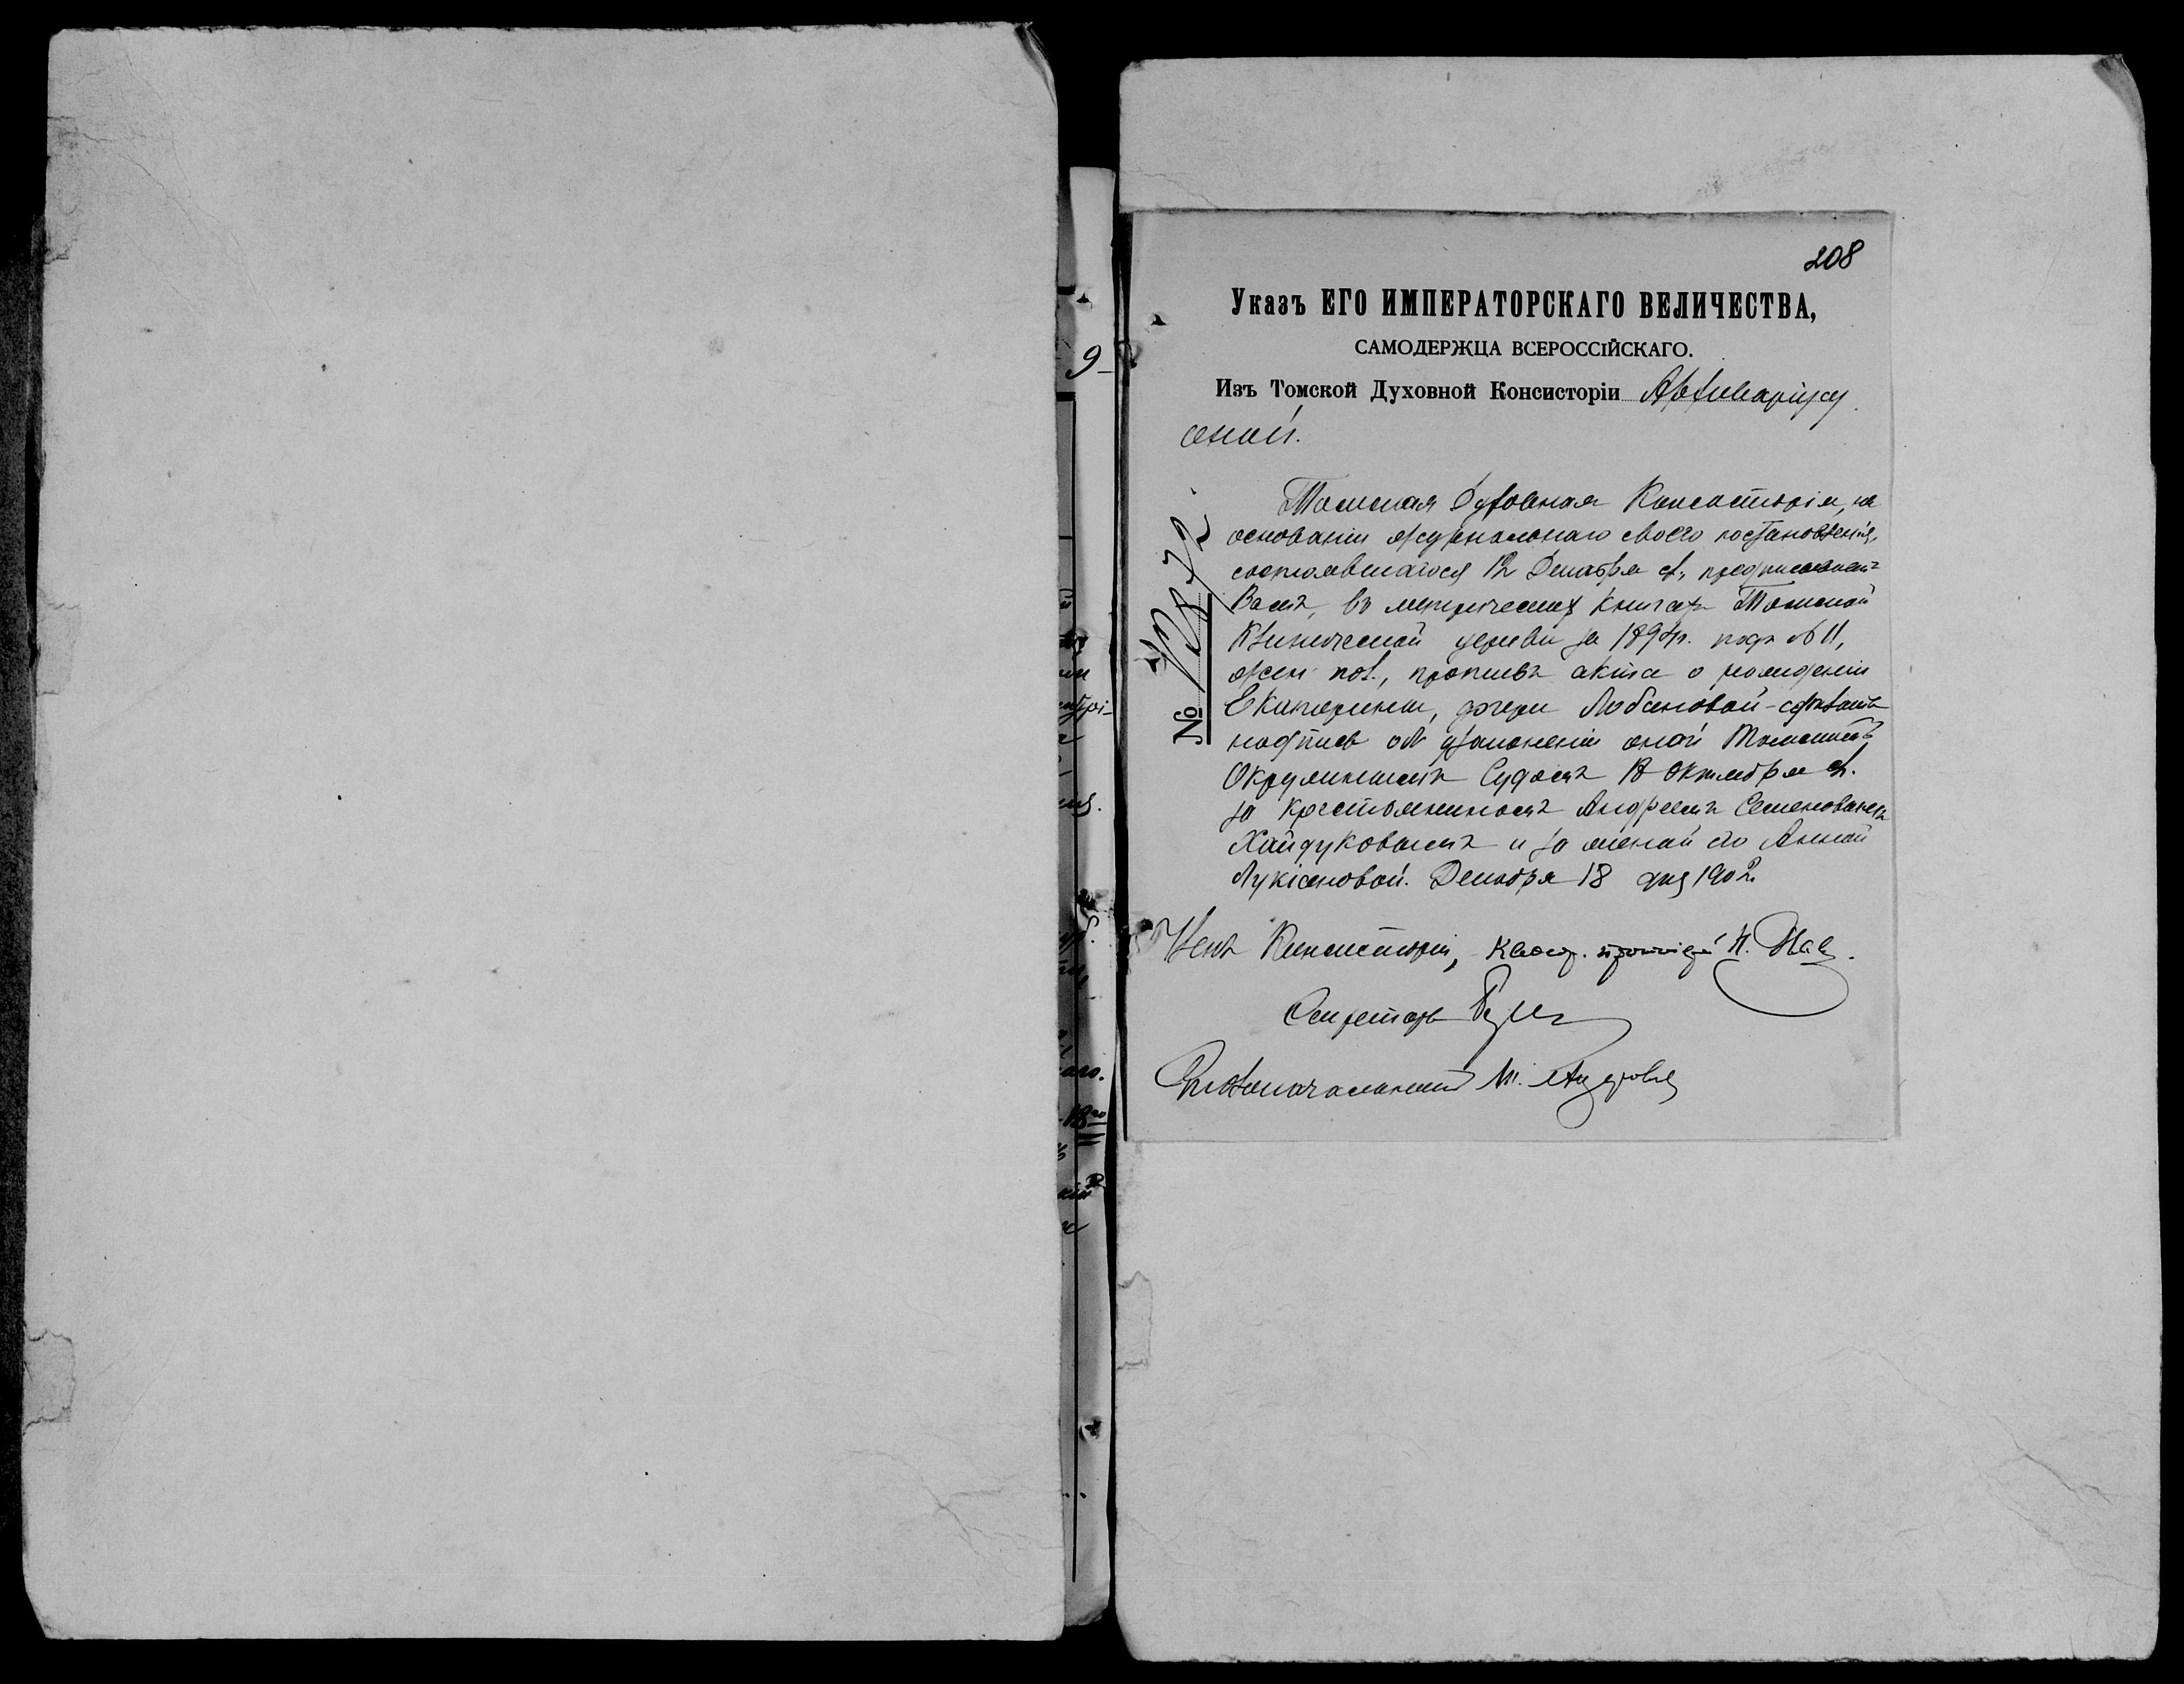 208
Указъ ЕГО ИМПЕРАТОРСКАГО ВЕЛИЧЕСТВА,
САМОДЕРЖЦА ВСЕРОССІЙСКАГО.
Изъ Томской Духовной Консисторіи Архиваріусу
оной.
Томская Духовная Консисторія, на
основаніи журнальнаго своего постановленія,
состоявшагося 12 Декабря с/г., предписываетъ
Вамъ, въ метрическихъ книгахъ Томской
Клинической церкви за 1894 г. подъ № 11,
жен. пол., противъ акта о рожденіи
Екатерины, дочери Лобановой - сдѣлать
надпись объ узаконеніи оной Томскимъ
Окружнымъ Судомъ 18 Октября с/г.
за крестьяниномъ Андреемъ Семеновымъ
Хайдуковымъ и за женой его Анной
Лукіановой. Декабря 18 дня 1902 г.
Членъ Консисторіи, каѳедр. протоіерей Н.
Секретарь
Столоначальникъ М.
№
9